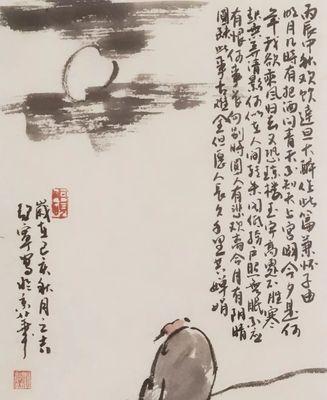 丙辰中秋欢饮达旦大醉作此篇兼怀子由
明月几时有把酒问青天不知天上宫阙今夕是何
年我欲乘风归去又恐琼楼玉宇高处不胜寒
起舞弄清影何似在人间转朱阁低绮户照无眠不应
有恨何事长向别时圆人有悲欢离合月有阴晴
圆缺此事古难全但愿人长久千里共婵娟
岁在己亥秋月之吉
寧写於京华